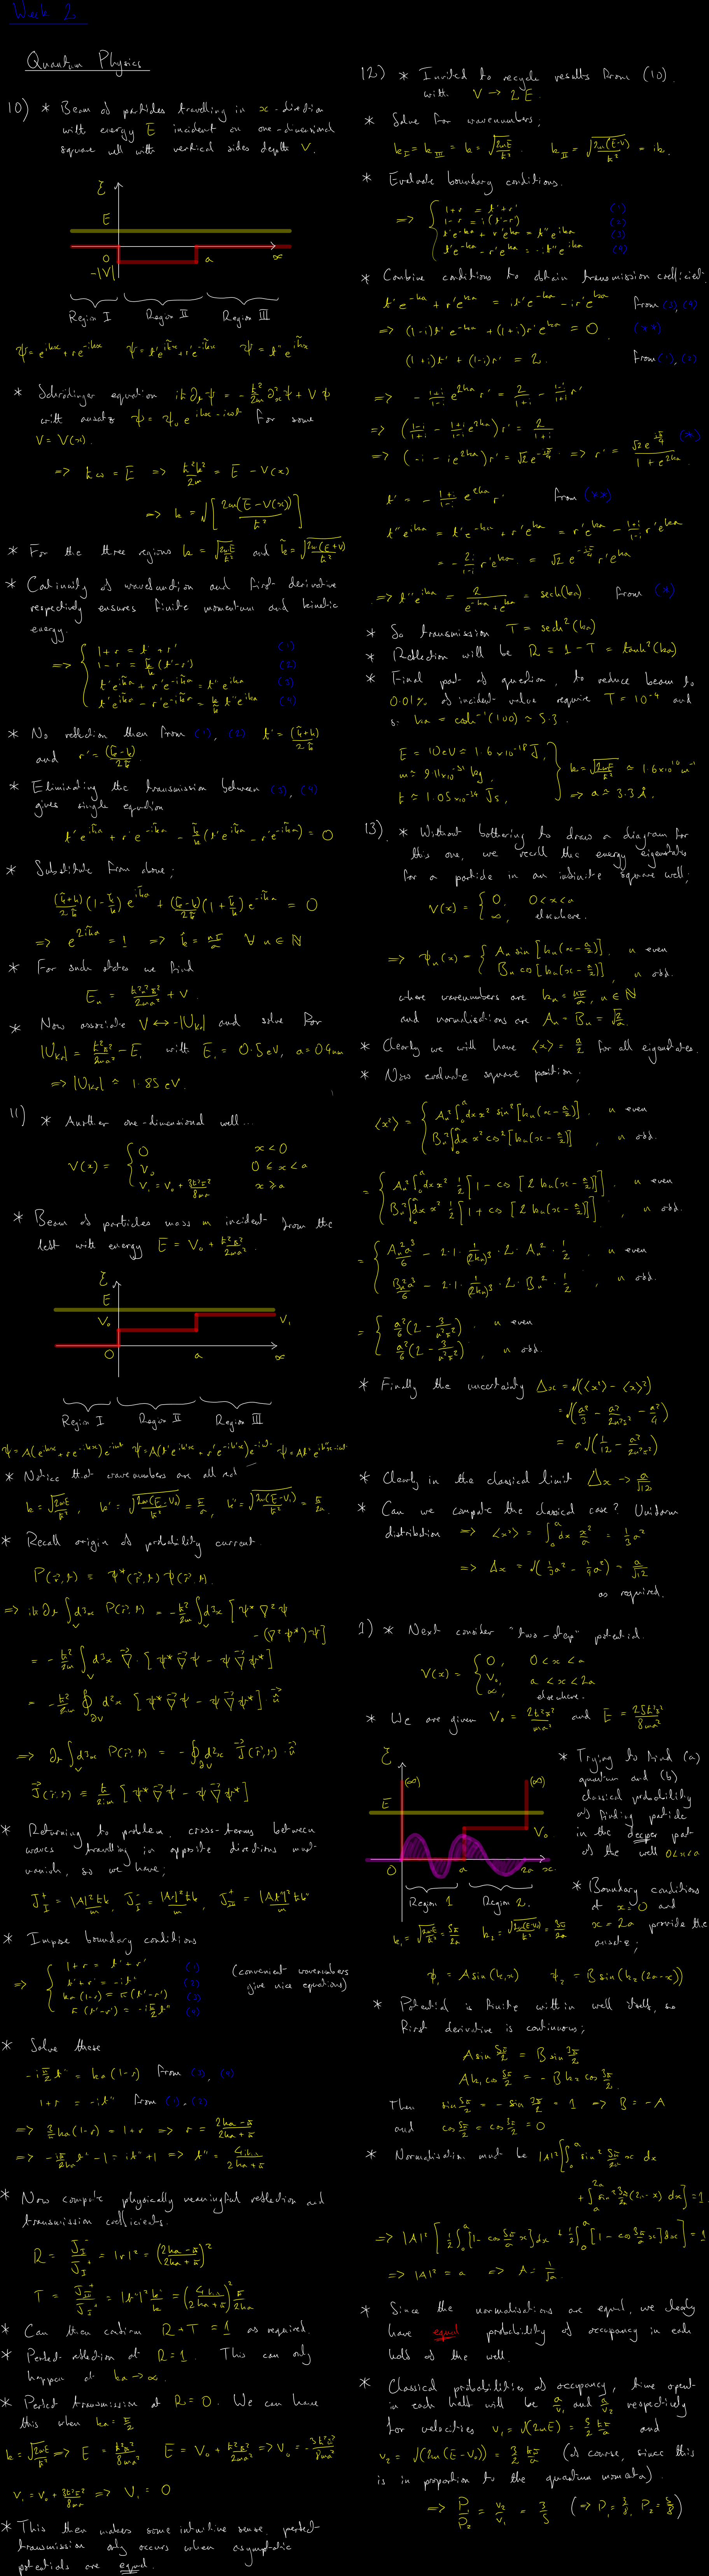 Week 2
Quantum Physics
10) * Beam of particles travelling in x-direction
with energy E incident on one-dimensional
square well with vertical sides depth V.
ξ
E
0
a
x
-|V|
Region I
Region II
Region III
ψ = e^{ikx} + re^{-ikx}   ψ = t'e^{ik̃x} + r'e^{-ik̃x}   ψ = t''e^{ikx}
* Schrödinger equation iħ∂ₜψ = -ħ²/2m ∂ₓ²ψ + Vψ
with ansatz ψ = ψ₀e^{ikx-iωt} for some
V = V(x).
=> ħω = E => ħ²k²/2m = E - V(x)
=> k = √[2m(E-V(x))/ħ²]
* For the three regions k = √(2mE/ħ²) and k̃ = √(2m(E+V)/ħ²)
* Continuity of wavefunction and first derivative
respectively ensures finite momentum and kinetic
energy.
=> { 1 + r = t' + r' (1)
1 - r = k̃/k (t' - r') (2)
t'e^{ik̃a} + r'e^{-ik̃a} = t''e^{ika} (3)
t'e^{ik̃a} - r'e^{-ik̃a} = k/k̃ t''e^{ika} (4)
* No reflection then from (1), (2) t' = (k̃+k)/2k̃
and r' = (k̃-k)/2k̃.
* Eliminating the transmission between (3), (4)
gives single equation
t'e^{ik̃a} + r'e^{-ik̃a} - k̃/k (t'e^{ik̃a} - r'e^{-ik̃a}) = 0
* Substitute from above;
(k̃+k)/2k̃ (1 - k̃/k) e^{ik̃a} + (k̃-k)/2k̃ (1 + k̃/k) e^{-ik̃a} = 0
=> e^{2ik̃a} = 1 => k̃ = nπ/a ∀ n ∈ ℕ
* For such states we find
Eₙ = ħ²n²π²/2ma² + V.
* Now associate V ↔ -|U_Kr| and solve for
|U_Kr| = ħ²π²/2ma² - E, with E₁ = 0.5eV, a = 0.4nm
=> |U_Kr| ≈ 1.85 eV.
11) * Another one-dimensional well...
V(x) = { 0 x < 0
V₀ 0 ≤ x < a
V₁ = V₀ + 3ħ²π²/8ma² x ≥ a
* Beam of particles mass m incident from the
left with energy E = V₀ + ħ²π²/2ma².
ξ
E
V₀
V₁
0
a
x
Region I
Region II
Region III
ψ = A(e^{ikx} + re^{-ikx})e^{-iωt}   ψ = A(t'e^{ik'x} + r'e^{-ik'x})e^{-iωt}   ψ = At''e^{ik''x-iωt}
* Notice that wavenumbers are all not
k = √(2mE/ħ²), k' = √(2m(E-V₀)/ħ²) = π/a, k'' = √(2m(E-V₁)/ħ²) = π/2a.
* Recall origin of probability current.
P(r,t) = ψ*(r,t)ψ(r,t).
=> iħ∂ₜ∫_V d³x P(r,t) = -ħ²/2m ∫_V d³x [ψ*∇²ψ
-(∇²ψ*)ψ]
= -ħ²/2m ∫_V d³x ∇·[ψ*∇ψ - ψ∇ψ*]
= -ħ²/2m ∮_∂V d²x [ψ*∇ψ - ψ∇ψ*]·n
=> ∂ₜ∫_V d³x P(r,t) = -∮_∂V d²x J(r,t)·n
J(r,t) ≡ ħ/2im [ψ*∇ψ - ψ∇ψ*]
* Returning to problem, cross-terms between
waves travelling in opposite directions must
vanish, so we have;
J_I⁺ = |A|²ħk/m, J_I⁻ = |Ar|²ħk/m, J_III⁺ = |At''|²ħk''/m
* Impose boundary conditions
=> { 1 + r = t' + r' (1)
t' + r' = -it'' (2)
ka(1-r) = π(t'-r') (3)
π(t'-r') = -iπ/2 t'' (4)
(convenient wavenumbers
give nice equations)
* Solve these
-iπ/2 t'' = ka(1-r) from (3), (4)
1 + r = -it'' from (1), (2)
=> 2/π ka(1-r) = 1 + r => r = (2ka-π)/(2ka+π)
=> -iπ/2ka t'' - 1 = it'' + 1 => t'' = 4ika/(2ka+π)
* Now compute physically meaningful reflection and
transmission coefficients.
R = J_I⁻/J_I⁺ = |r|² = ((2ka-π)/(2ka+π))²
T = J_III⁺/J_I⁺ = |t''|² k''/k = (4ka/(2ka+π))² π/2ka
* Can then confirm R + T = 1 as required.
* Perfect reflection at R = 1. This can only
happen at ka → ∞.
* Perfect transmission at R = 0. We can have
this when ka = π/2
k = √(2mE/ħ²) => E = ħ²π²/8ma²   E = V₀ + ħ²π²/2ma² => V₀ = -3ħ²π²/8ma²
V₁ = V₀ + 3ħ²π²/8ma² => V₁ = 0
* This then makes some intuitive sense, perfect
transmission only occurs when asymptotic
potentials are equal.
12) * Invited to recycle results from (10).
with V → 2E.
* Solve for wavenumbers;
k_I = k_III = k = √(2mE/ħ²). k_II = √(2m(E-V)/ħ²) = ik.
* Evaluate boundary conditions.
=> { 1 + r = t' + r' (1)
1 - r = i(t' - r') (2)
t'e^{-ka} + r'e^{ka} = t''e^{ika} (3)
t'e^{-ka} - r'e^{ka} = -it''e^{ika} (4)
* Combine conditions to obtain transmission coefficient.
t'e^{-ka} + r'e^{ka} = it'e^{-ka} - ir'e^{ka} from (3), (4)
=> (1-i)t'e^{-ka} + (1+i)r'e^{ka} = 0. (**)
(1+i)t' + (1-i)r' = 2. from (1), (2)
=> - (1+i)/(1-i) e^{2ka} r' = 2/(1+i) - (1-i)/(1+i) r'
=> ((1-i)/(1+i) - (1+i)/(1-i) e^{2ka}) r' = 2/(1+i)
=> (-i - ie^{2ka}) r' = √2 e^{-iπ/4} => r' = √2 e^{iπ/4}/(1 + e^{2ka}) (*)
t' = - (1+i)/(1-i) e^{2ka} r' from (**)
t''e^{ika} = t'e^{-ka} + r'e^{ka} = r'e^{ka} - (1+i)/(1-i) r'e^{ka}
= - 2i/(1-i) r'e^{ka} = √2 e^{-iπ/4} r'e^{ka}
=> t''e^{ika} = 2/(e^{-ka} + e^{ka}) = sech(ka). from (*)
* So transmission T = sech²(ka)
* Reflection will be R = 1 - T = tanh²(ka)
* Final part of question, to reduce beam to
0.01% of incident value require T = 10⁻⁴ and
so ka = cosh⁻¹(100) ≈ 5.3.
E = 10eV ≈ 1.6×10⁻¹⁸ J,
m ≈ 9.11×10⁻³¹ kg,
ħ ≈ 1.05×10⁻³⁴ Js,
k = √(2mE/ħ²) ≈ 1.6×10¹⁰ m⁻¹
=> a ≈ 3.3 Å.
13). * Without bothering to draw a diagram for
this one, we recall the energy eigenstates
for a particle in an infinite square well;
V(x) = { 0, 0 < x < a
∞, elsewhere.
=> ψₙ(x) = { Aₙ sin[kₙ(x-a/2)], n even
Bₙ cos[kₙ(x-a/2)], n odd.
where wavenumbers are kₙ = nπ/a, n ∈ ℕ
and normalisations are Aₙ = Bₙ = √(2/a).
* Clearly we will have ⟨x⟩ = a/2 for all eigenstates.
* Now evaluate square position;
⟨x²⟩ = { Aₙ²∫₀ᵃ dx x² sin²[kₙ(x-a/2)], n even
Bₙ²∫₀ᵃ dx x² cos²[kₙ(x-a/2)], n odd.
= { Aₙ²∫₀ᵃ dx x² 1/2 [1 - cos[2kₙ(x-a/2)]], n even
Bₙ²∫₀ᵃ dx x² 1/2 [1 + cos[2kₙ(x-a/2)]], n odd.
= { Aₙ²a³/6 - 2·1·1/(2kₙ)³·2·Aₙ²·1/2, n even
Bₙ²a³/6 - 2·1·1/(2kₙ)³·2·Bₙ²·1/2, n odd.
= { a²/6 (2 - 3/n²π²), n even
a²/6 (2 - 3/n²π²), n odd.
* Finally the uncertainty Δx = √(⟨x²⟩ - ⟨x⟩²)
= √(a²/3 - a²/2n²π² - a²/4)
= a√(1/12 - a²/2n²π²)
* Clearly in the classical limit Δx → a/√12
* Can we compute the classical case? Uniform
distribution => ⟨x²⟩ = ∫₀ᵃ dx x²/a = 1/3 a²
=> Δx = √(1/3 a² - 1/4 a²) = a/√12
as required.
1) * Next consider "two-step" potential.
V(x) = { 0, 0 < x < a
V₀, a < x < 2a
∞, elsewhere.
* We are given V₀ = 2ħ²π²/ma² and E = 25ħ²π²/8ma²
ξ
(∞)
(∞)
E
V₀
0
a
2a
x
Region 1
Region 2.
k₁ = √(2mE/ħ²) = 5π/2a   k₂ = √(2m(E-V₀)/ħ²) = 3π/2a
* Trying to find (a)
quantum and (b)
classical probability
of finding particle
in the deeper part
of the well 0<x<a
* Boundary conditions
at x = 0 and
x = 2a provide the
ansatz;
ψ₁ = A sin(k₁x)   ψ₂ = B sin(k₂(2a-x))
* Potential is finite within well itself, so
first derivative is continuous;
A sin 5π/2 = B sin 3π/2
Ak₁ cos 5π/2 = -Bk₂ cos 3π/2.
Then sin 5π/2 = -sin 3π/2 = 1 => B = -A
and cos 5π/2 = cos 3π/2 = 0
* Normalisation must be |A|²[∫₀ᵃ sin² 5π/2a x dx
+ ∫ₐ²ᵃ sin² 3π/2a (2a-x) dx] = 1.
=> |A|² [1/2 ∫₀ᵃ [1 - cos 5π/a x] dx + 1/2 ∫₀ᵃ [1 - cos 3π/a x] dx] = 1
=> |A|² = a => A = 1/√a
* Since the normalisations are equal, we clearly
have equal probability of occupancy in each
half of the well.
* Classical probabilities of occupancy, time spent
in each half will be a/v₁ and a/v₂ respectively
for velocities v₁ = √(2mE) = 5/2 ħπ/a and
v₂ = √(2m(E-V₀)) = 3/2 ħπ/a (of course, since this
is in proportion to the quantum momenta).
=> P₁/P₂ = v₂/v₁ = 3/5 (=> P₁ = 3/8, P₂ = 5/8)